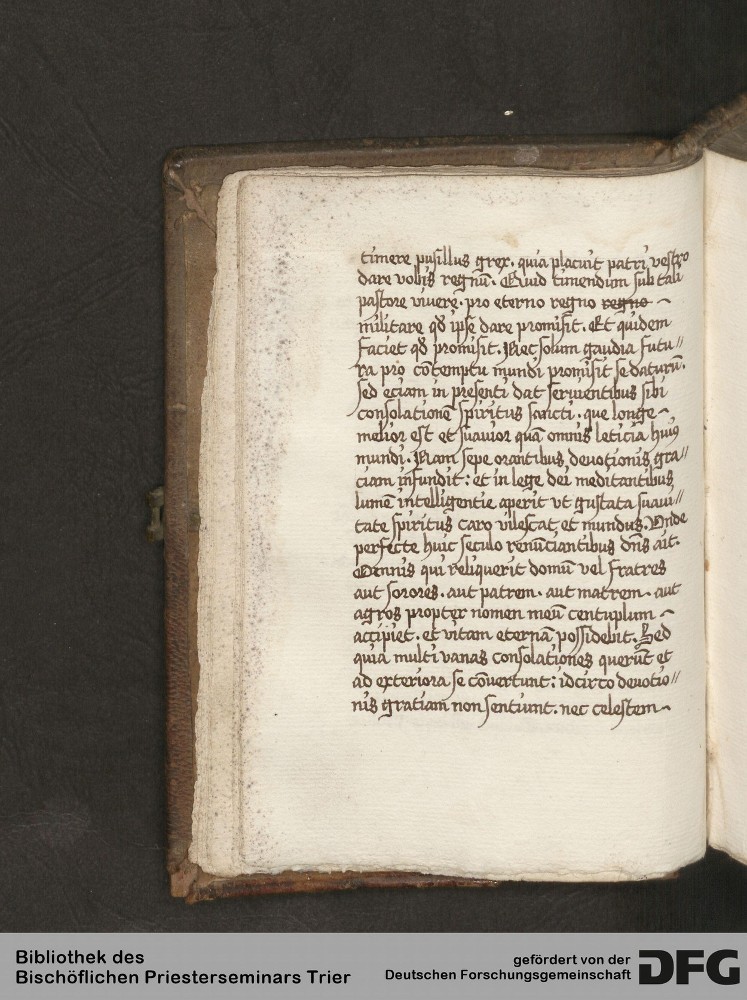 timere pusillus grex. quia placuit patri vestro
dare vobis regnū. Quid timendum sub tali
pastore vivere. pro eterno regno regno ~
militare qđ ipse dare promisit. Et quidem
faciet qđ promisit. Nec solum gaudia futu//
ra pro cōtemptu mundi promisit se daturū.
sed eciam in presenti dat servientibus sibi
consolationē spiritus sancti. que longe ~
melior est et suavior quā omnis leticia huiꝰ
mundi. Nam sepe orantibus devotionis gra//
ciam infundit: et in lege dei meditantibus
lumē intelligentie aperit vt gustata suaui//
tate spiritus caro vilescat et mundus. Vnde
perfecte huic seculo renūciantibus dn̄s ait.
Omnis qui reliquerit domū vel fratres
aut sorores. aut patrem. aut matrem. aut
agros propter nomen meū centuplum ~
accipiet. et vitam eternā possidebit. Sed
quia multi vanas consolationes querūt et
ad exteriora se cōvertunt: idcirco deuotio//
nis gratiam non sentiunt. nec celestem ~
Bibliothek des
Bischöflichen Priesterseminars Trier
gefördert von der
Deutschen Forschungsgemeinschaft
DFG